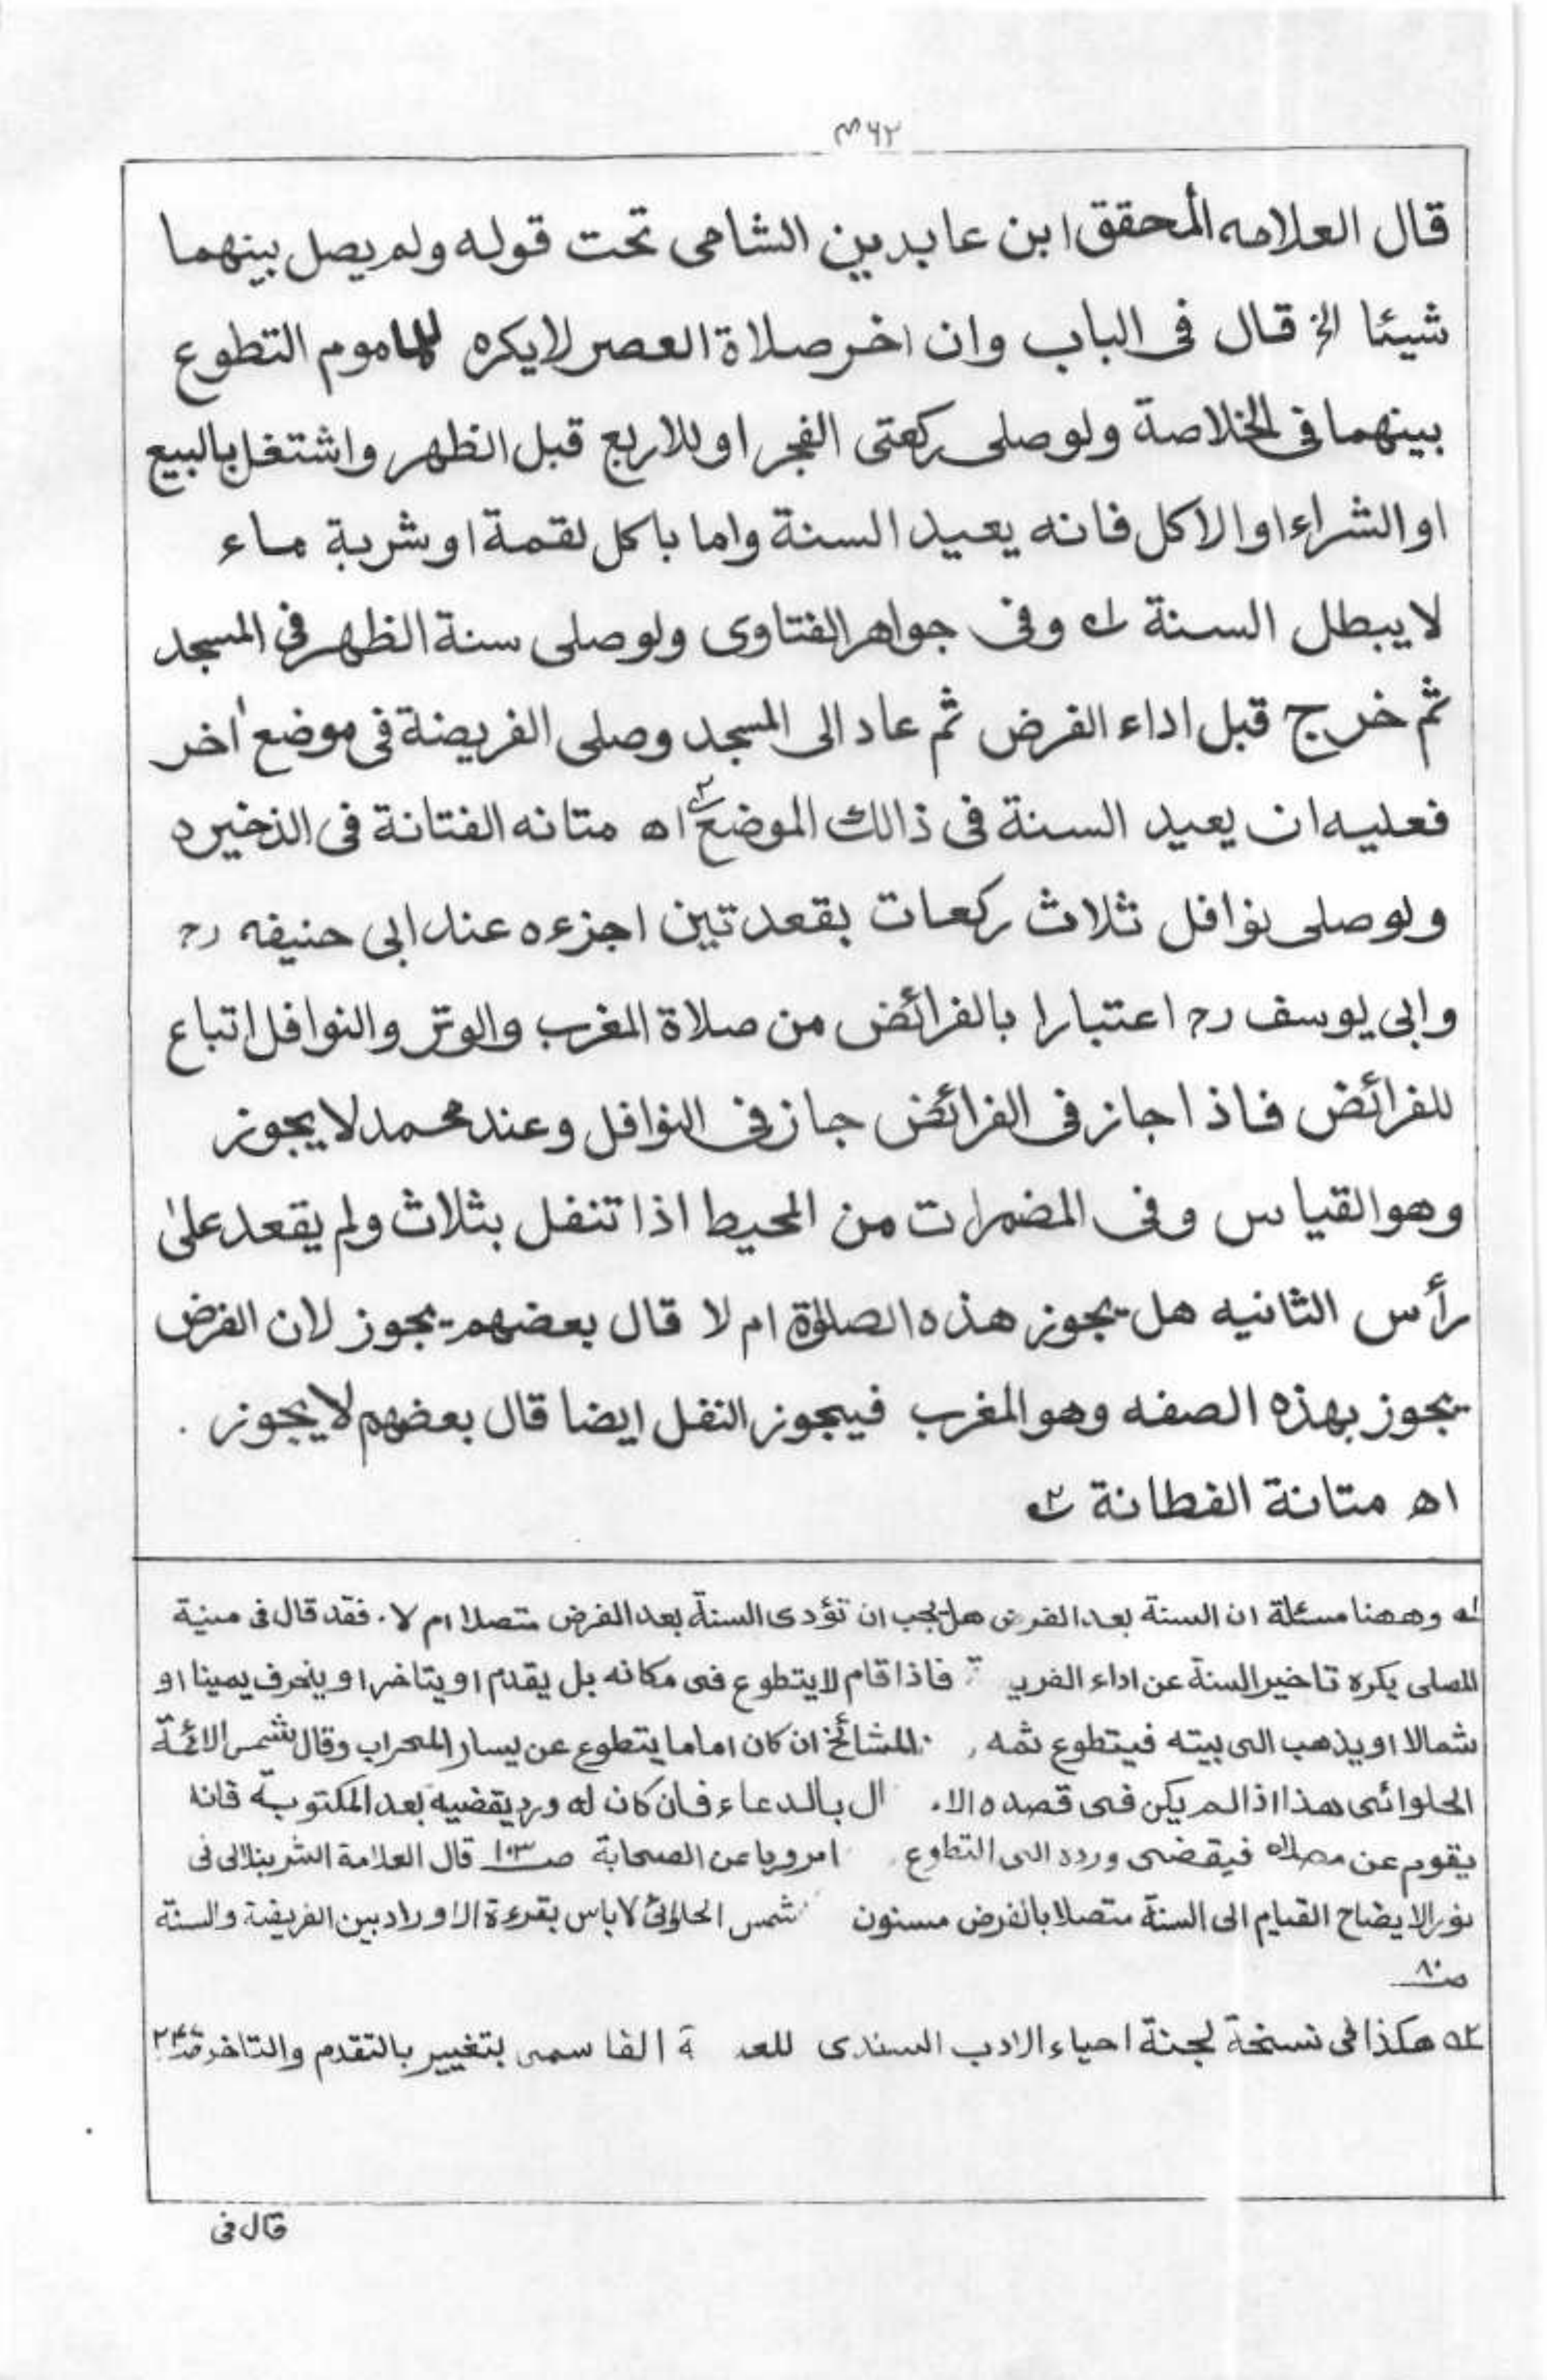 ٣٦٢
قال العلامه المحقق ابن عابدين الشامى تحت قوله ولم يصل بينهما
شيئا الخ قال فى الباب وان اخر صلاة العصر لا يكره للماموم التطوع
بينهما فى الخلاصة ولو صلى ركعتى الفجر او للاربع قبل الظهر واشتغل بالبيع
او الشراء او الاكل فانه يعيد السنة واما باكل لقمة او شربة ماء
لا يبطل السنة له وفى جواهر الفتاوى ولو صلى سنة الظهر فى المسجد
ثم خرج قبل اداء الفرض ثم عاد الى المسجد وصلى الفريضة فى موضع أخر
فعليه ان يعيد السنة فى ذالك الموضع ٢ اه متانه الفتانة فى الذخيره
ولو صلى نوافل ثلاث ركعات بقعدتين اجزءه عند ابى حنيفه رح
وابى يوسف رح اعتبارا بالفرائض من صلاة المغرب والوتر والنوافل اتباع
للفرائض فاذا جاز فى الفرائض جاز فى النوافل وعند محمد لا يجوز
وهو القياس وفى المضمرات من المحيط اذا تنفل بثلاث ولم يقعد على
رأس الثانيه هل يجوز هذه الصلوٰة ام لا قال بعضهم يجوز لان الفرض
يجوز بهذه الصفه وهو المغرب فيجوز النفل ايضا قال بعضهم لا يجوز .
اه متانة الفطانة ٢
له وههنا مسئلة ان السنة بعد الفرض هل يجب ان تؤدى السنة بعد الفرض متصلا ام لا. فقد قال فى منية
المصلى يكره تاخير السنة عن اداء الفري ة فاذا قام لا يتطوع فى مكانه بل يقدم او يتاخر او ينحرف يمينا او
شمالا او يذهب الى بيته فيتطوع ثمه المشائخ ان كان اماما يتطوع عن يسار المحراب وقال شمس الائمة
الحلوائى هذا اذا لم يكن فى قصده الا ال بالدعاء فان كان له ورد يقضيه بعد المكتوبة فانه
يقوم عن مصلاه فيقضى ورده الى التطوع امرويا عن الصحابة صـ١٠٣ قال العلامة الشرنبلالى فى
نور الايضاح القيام الى السنة متصلا بالفرض مسنون شمس الحلوائى لا باس بقرءة الاوراد بين الفريضة والسنة
صـ٨٠
٢ه هكذا فى نسخة لجنة احياء الادب السندى للعـ ة القاسمى بتغيير بالتقدم والتاخر
قال فى